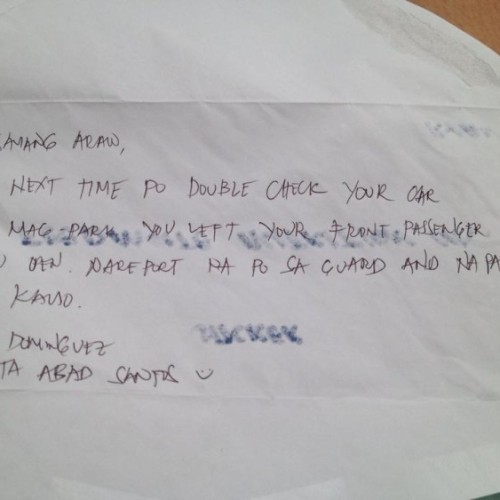 AMANG ARAW,
NEXT TIME PO DOUBLE CHECK YOUR CAR
MAG-PARK YOU LEFT YOUR FRONT PASSENGER
OPEN. NAREPORT NA PO SA GUARD AND NAPA
KAYO.
DOMINGUEZ
TA ABAD SANTOS